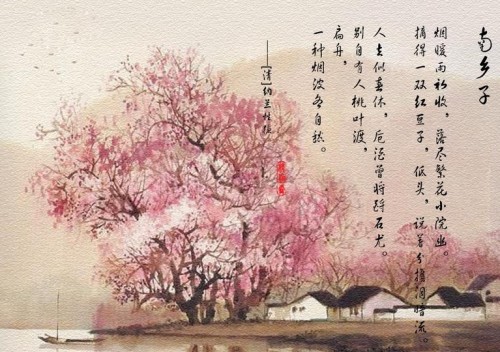 南乡子
烟暖雨初收，落尽繁花小院幽。
摘得一双红豆子，低头，说着分携泪暗流。
人去似春休，卮酒曾将酹石尤。
别自有人桃叶渡，
扁舟，
一种烟波各自愁。
——[清]纳兰性德